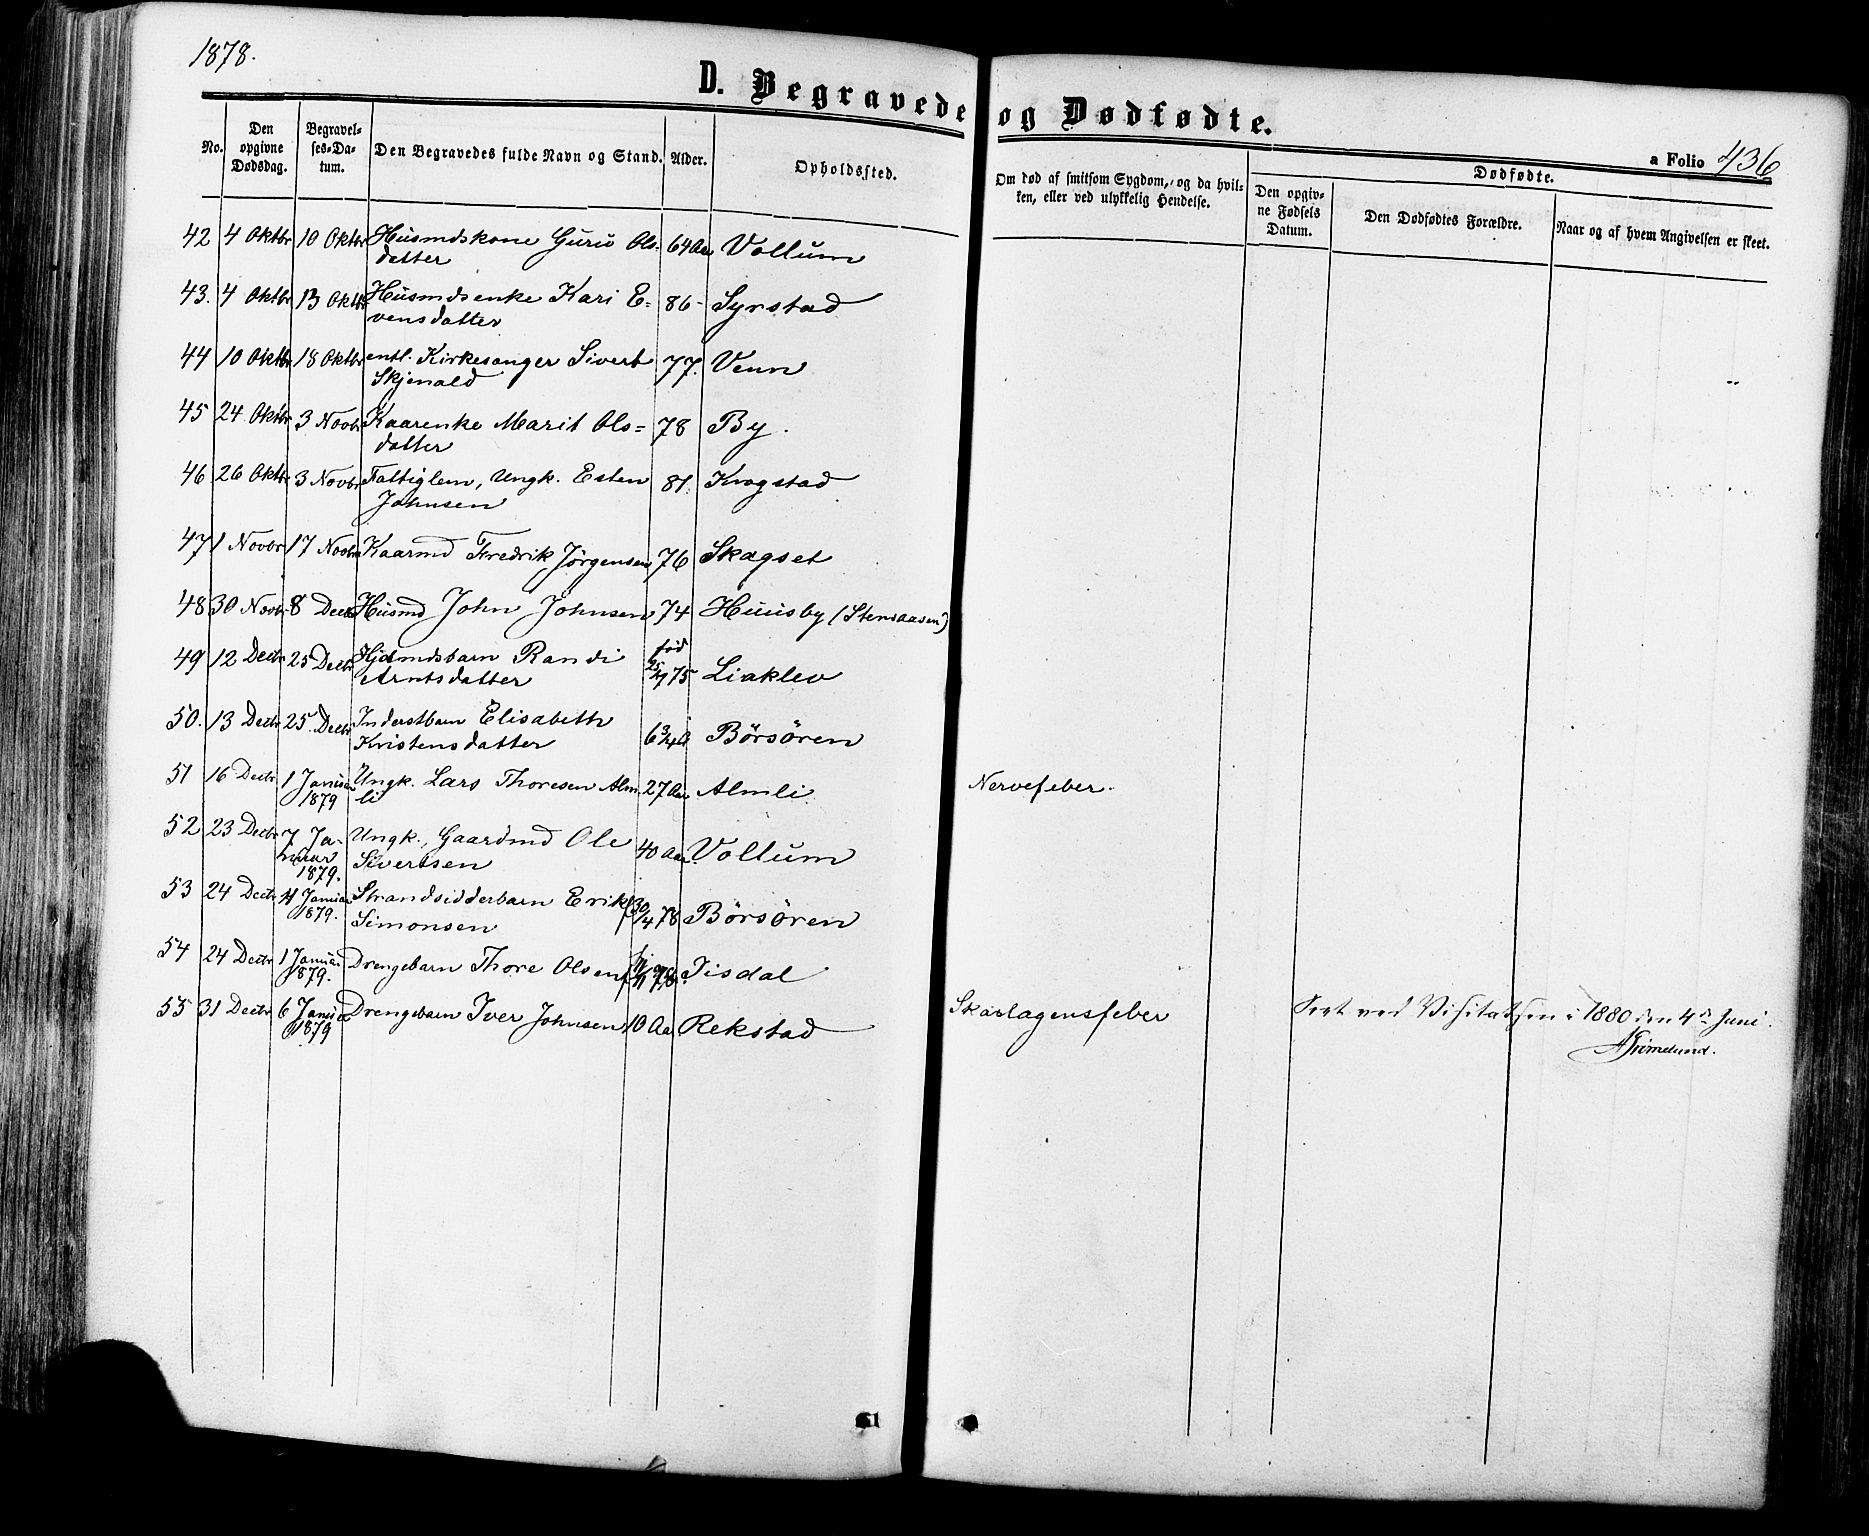 1878.
D. Begravede og Dødfødte.
a Folio 436
No.
Den opgivne Dødsdag.
Begravel-
ses-Da-
tum.
Den Begravedes fulde Navn og Stand.
Alder.
Opholdssted.
Om død af smitsom Sygdom, og da hvil-
ken, eller ved ulykkelig Hendelse.
Dødfødte.
Den opgiv-
ne Fødsels
Datum.
Den Dødfødtes Forældre.
Naar og af hvem Angivelsen er skeet.
42 4 Oktbr 10 Oktbr Husmdskone Guru Ols- 64 Aar Vollum
datter
43. 4 Oktbr 13 Oktbr Husmdsenke Kari E= 86 - Syrstad
vensdatter
44 10 Oktbr 18 Oktbr entl. Kirkesanger Sivert 77. Venn
Skjenald
45 24 Oktbr 3 Novbr Kaarenke Marit Ols= 78 By.
datter
46 26 Oktbr 3 Novbr Fattiglem, Ungk. Esten 81. Krogstad
Johnsen
47 1 Novbr 17 Novbr Kaarmd Fredrik Jörgensen 76 Skagset
48 30 Novbr 8 Decbr Husmd John Johnsen 74 Huusby (Stensaasen)
49 12 Decbr 25 Decbr Randi født 75 Liaklev
Arntsdatter
50. 13 Decbr 25. Decbr Inderstbarn Elisabeth 6 3/4 Börsören
Kristensdatter
51 16 Decbr 1 Januar Ungk. Lars Thoresen Alm- 27 Aar Almli. Nervefeber.
1879 li
52 23 Decbr 7 Ja- Ungk., Gaardmd Ole 40 Aar. Vollum
nuar Sivertsen
1879.
53 24 Decbr 4 Januar Strandsidderbarn Erik f 30/4 78 Börsören
1879. Simonsen
54 24 Decbr 1 Januar Drengebarn Thore Olsen 78. Jisdal
1879.
55 31 Decbr 6 Januar Drengebarn Iver Johnsen 10 Aar Rekstad Skarlagensfeber Seet ved Visitatsen i 1880 den 4de Juni.
1879 AGrimelund.